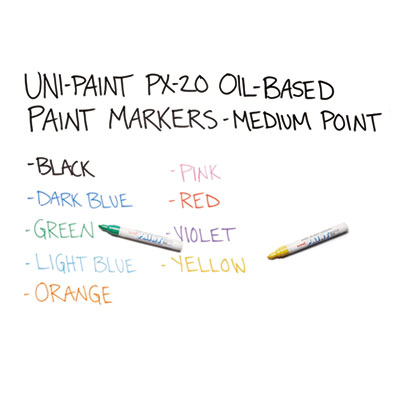 UNI-PAINT PX-20 OIL-BASED
PAINT MARKERS - MEDIUM POINT
- BLACK
- DARK BLUE
- GREEN
- LIGHT BLUE
- ORANGE
- PINK
- RED
- VIOLET
- YELLOW